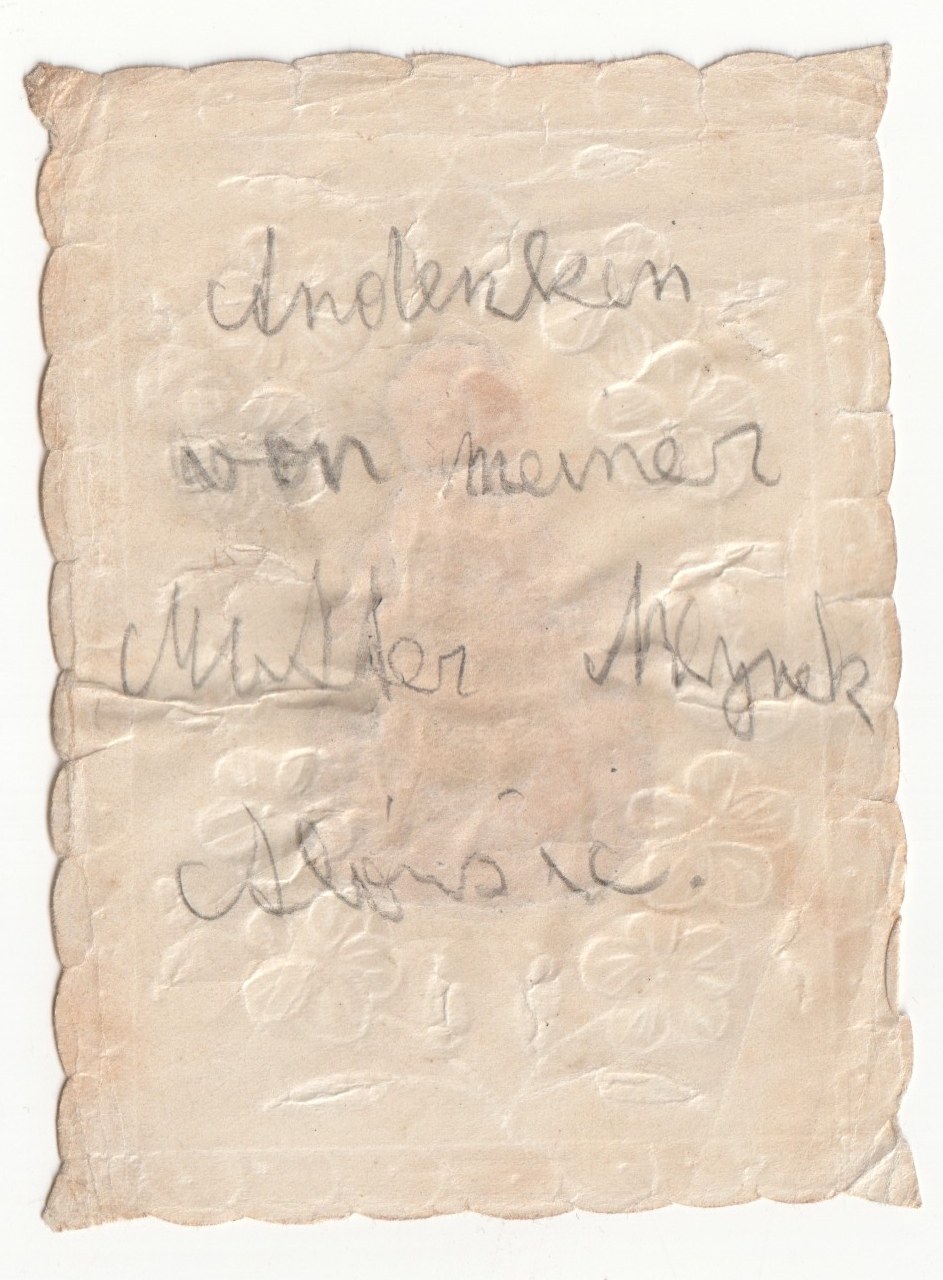 Andenken
von meiner
Mutter Mlynek
Aloisie.